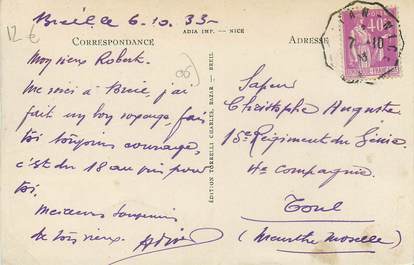 12 €
Breil le 6.10.33-
ADIA IMP. - NICE
CORRESPONDANCE
ADRESSE
06
Mon vieux Robert.
Me voici à Breil, j'ai
fait un bon voyage, fais
toi toujours courage,
c'est du 18 au jus pour
toi.
Meilleurs souvenirs
de ton vieux.
EDITION TORRELLI CHARLES, BAZAR - BREIL
40c
7 - 10
Sapeur
Christophe Auguste
15e Régiment du Génie
4e Compagnie
Toul
(Meurthe Moselle)